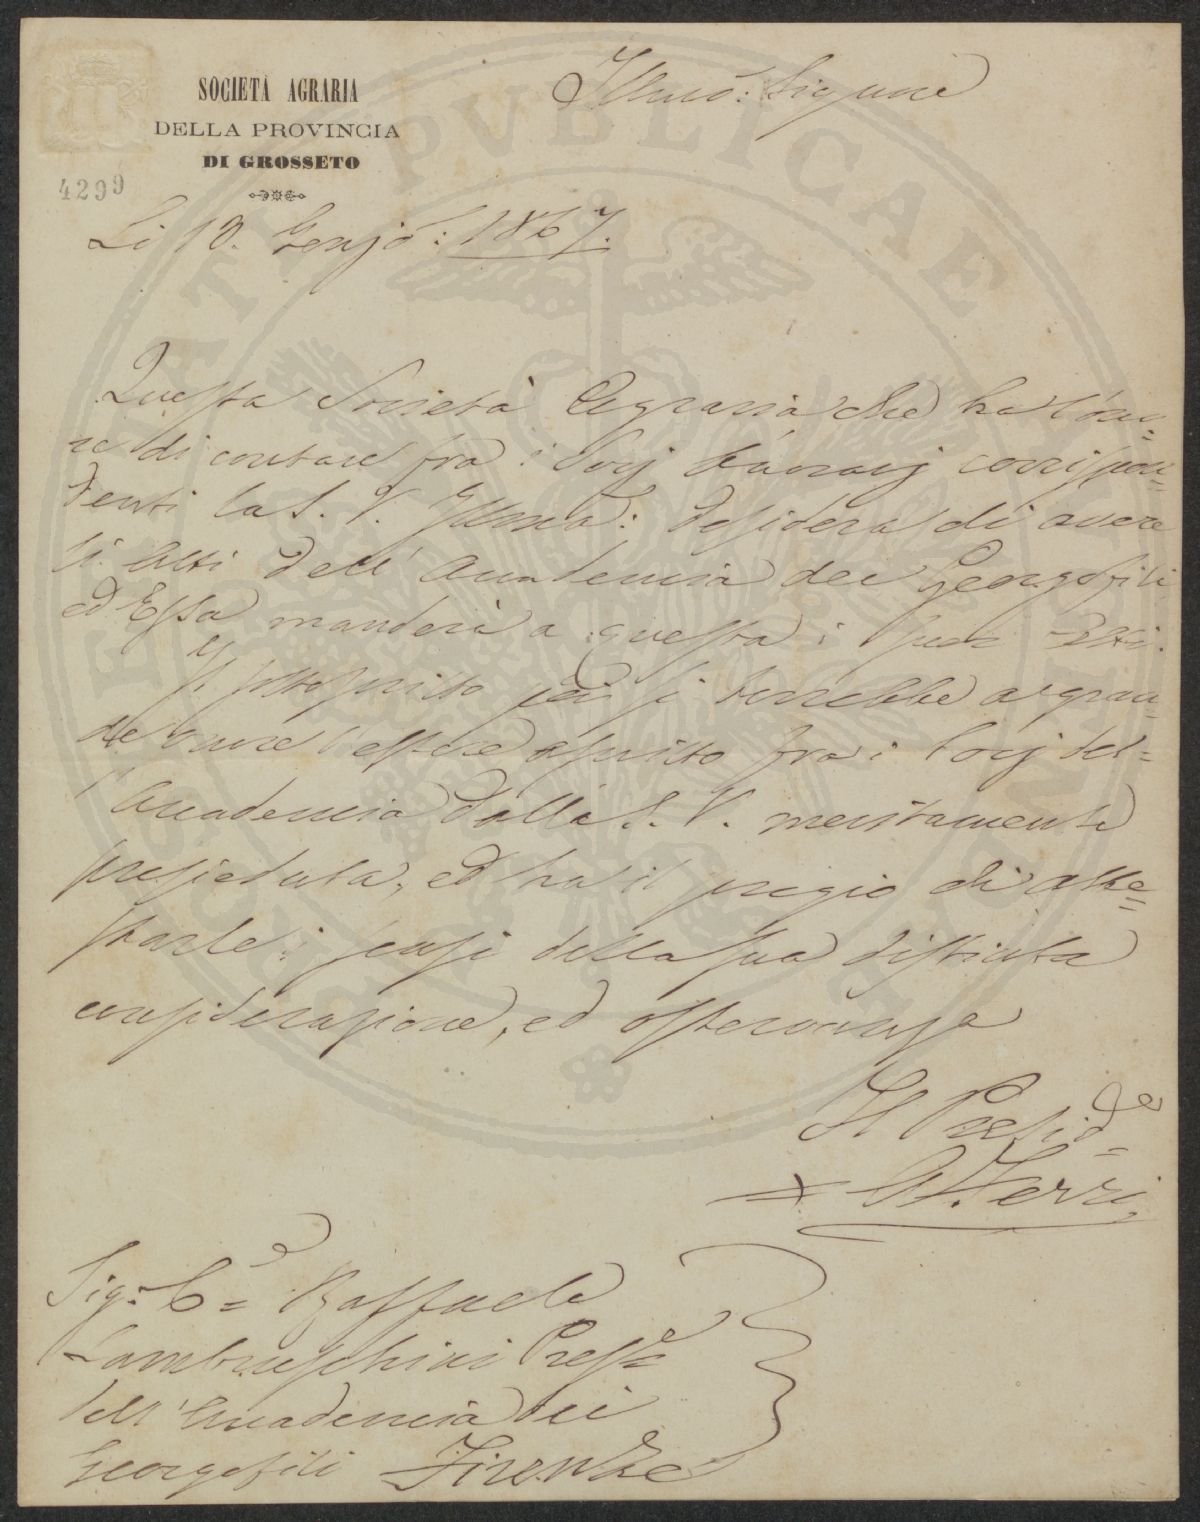 SOCIETÀ AGRARIA
DELLA PROVINCIA
DI GROSSETO
4299
Illmo: Signore
Li 10. Genjo: 1867.
Questa Società Agraria che ha l'ono=
re di contare fra i Socj Onorarj corrispon=
denti la S. V. Illma: desidera di avere
li Atti dell' Accademia dei Georgofili
ed Essa manderà a questa i suoi Atti.
Il sottoscritto poi si terrebbe a gran=
de onore l'essere ascritto fra i Socj del=
l'Accademia dalla S. V. meritamente
presieduta, ed ha il pregio di atte=
starle i sensi della sua distinta
considerazione, ed osservanza
Il Presid=e
A. Ferri
Sig: C= Raffaele
Lambruschini Preste
dell'Accademia dei
Georgofili Firenze